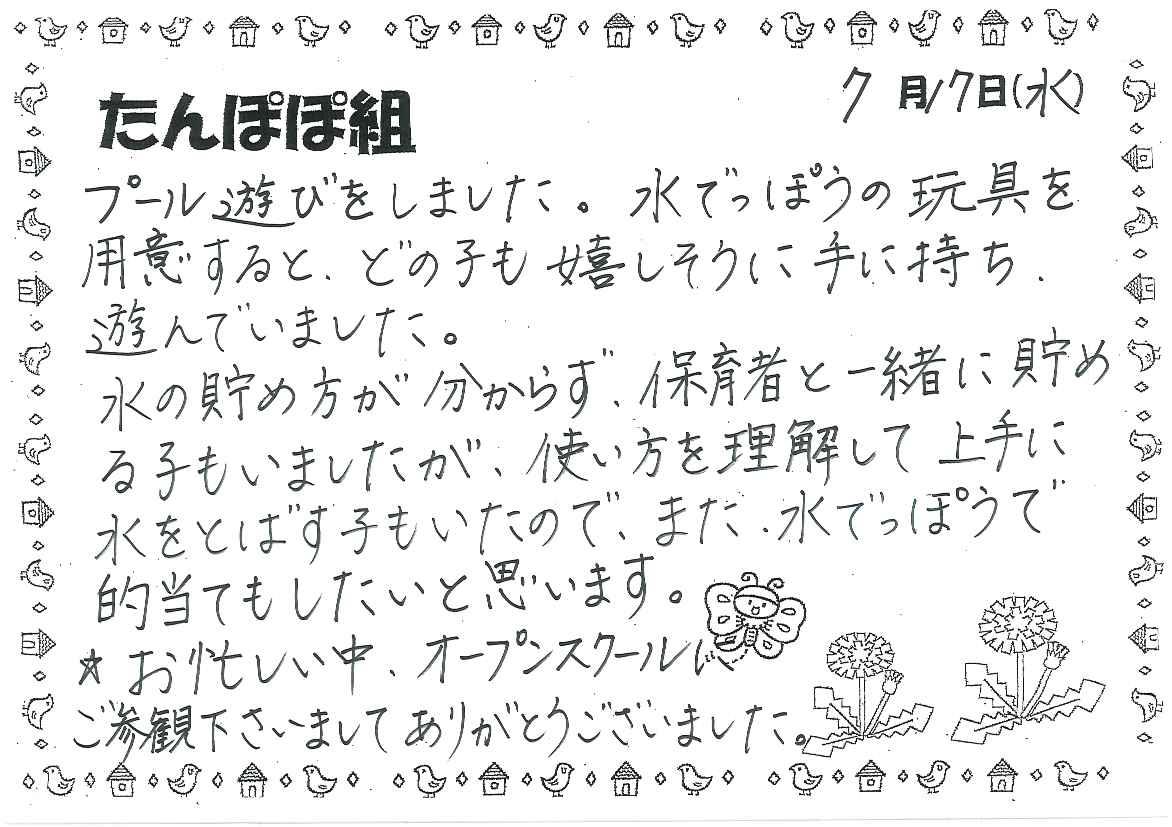 7月17日(水)
たんぽぽ組
プール遊びをしました。水でっぽうの玩具を
用意すると、どの子も嬉しそうに手に持ち、
遊んでいました。
水の貯め方が分からず、保育者と一緒に貯め
る子もいましたが、使い方を理解して上手に
水をとばす子もいたので、また、水でっぽうで
的当てもしたいと思います。
☆お忙しい中、オープンスクールに
ご参観下さいましてありがとうございました。